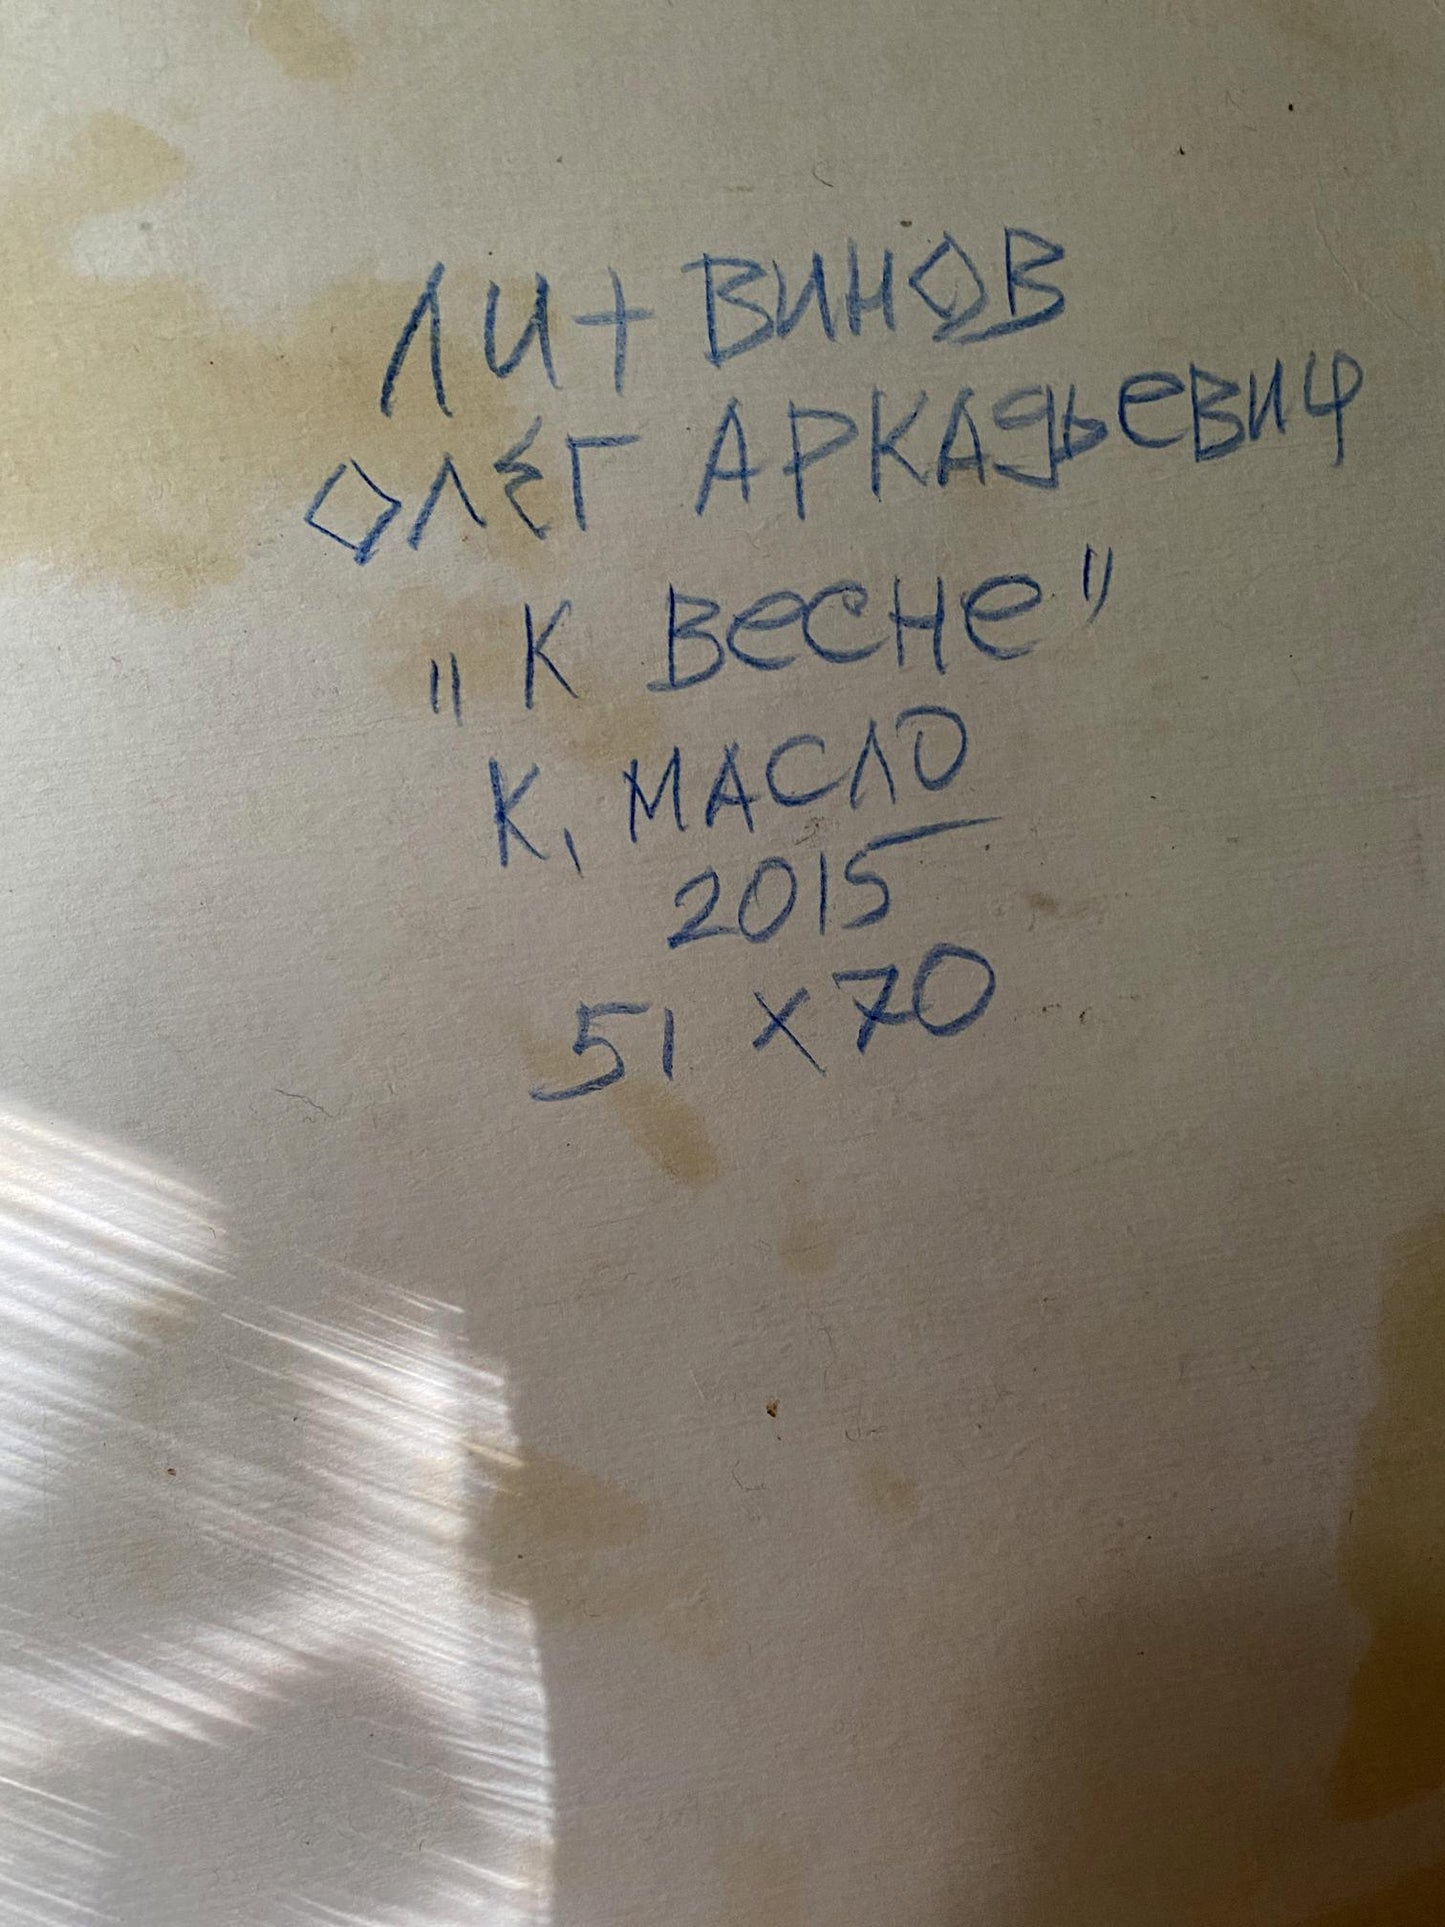 ЛИТВИНОВ
ОЛЕГ АРКАДЬЕВИЧ
„К ВЕСНЕ"
К, МАСЛО
2015
51 x 70